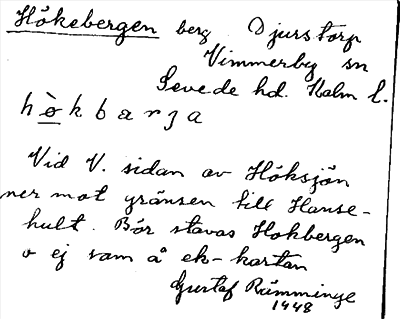 Hökebergen berg. Djurstorp
Vimmerby sn
Sevede hd. Kalm l.
hò̱kbarʒa
Vid V. sidan av Höksjön
ner mot gränsen till Hanse-
hult. Bör stavas Hokbergen
o ej som å ek-kartan
Gustaf Rämminge
1948